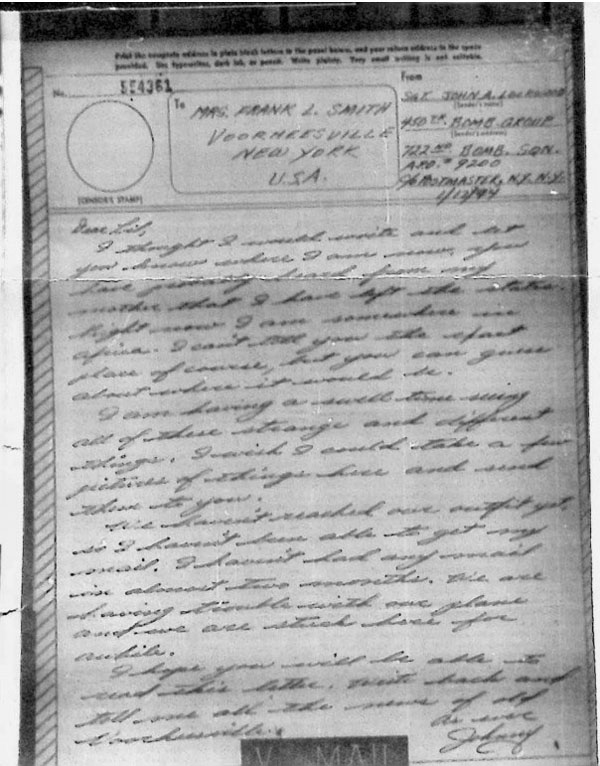 Print the complete address in plain block letters in the panel below, and your return address in the space
provided. Use typewriter, dark ink, or pencil. Write plainly. Very small writing is not suitable.
No. 554361
To
MRS. FRANK L. SMITH
VOORHEESVILLE
NEW YORK
U.S.A.
From
SGT. JOHN A. LOCKWOOD
(Sender's name)
450TH BOMB. GROUP
(Sender's address)
722ND BOMB. SQN.
A.P.O. # 9200
C/O POSTMASTER, N.Y. N.Y.
1/12/44
(CENSOR'S STAMP)
Dear Lib,
I thought I would write and let
you know where I am now, you
have probably heard from my
mother that I have left the states.
Right now I am somewhere in
Africa. I can't tell you the exact
place of course, but you can guess
about where it would be.
I am having a swell time seeing
all of these strange and different
things. I wish I could take a few
pictures of things here and send
them to you.
We haven't reached our outfit yet,
so I haven't been able to get my
mail. I haven't had any mail
in almost two months. We are
having trouble with our plane
and we are stuck here for
awhile.
I hope you will be able to
read this letter. Write back and
tell me all the news of old
Voorheesville.
As ever
Johnny
V - MAIL